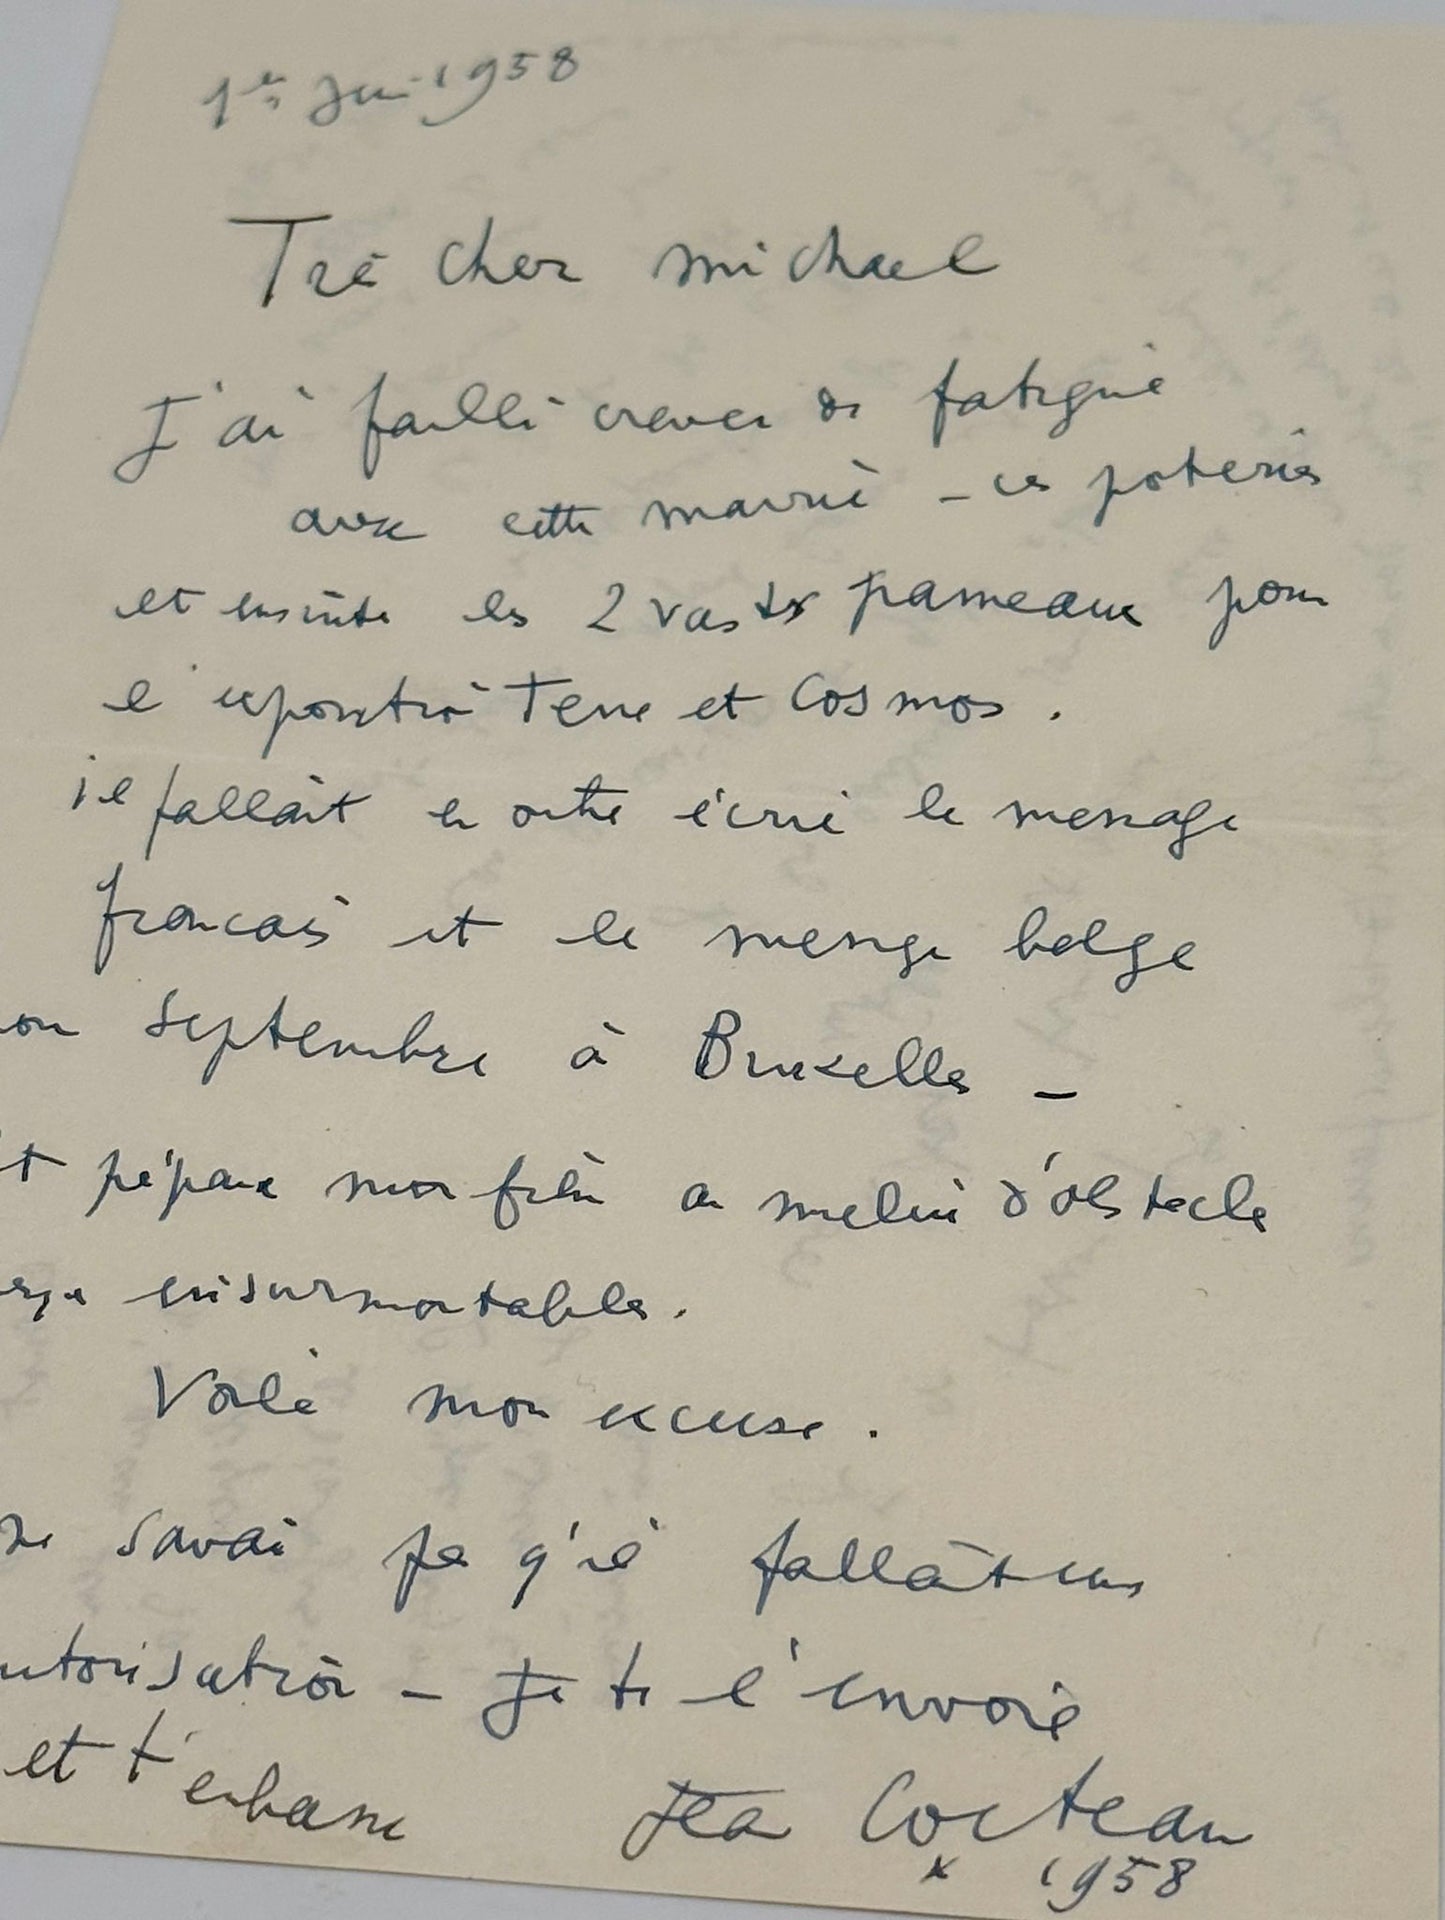 1er Juin 1958
Très cher Michael
J'ai failli crever de fatigue
avec cette mairie - ces poteries
et ensuite les 2 vastes panneaux pour
l'exposition Terre et Cosmos.
il fallait en outre écrire le message
francais et le message belge
septembre à Bruxelles -
préparer mon film au milieu d'obstacles
insurmontables.
Voilà mon excuse.
savais pas qu'il fallait une
utorisation - Je te l'envoie
et t'embrasse Jean Cocteau
1958